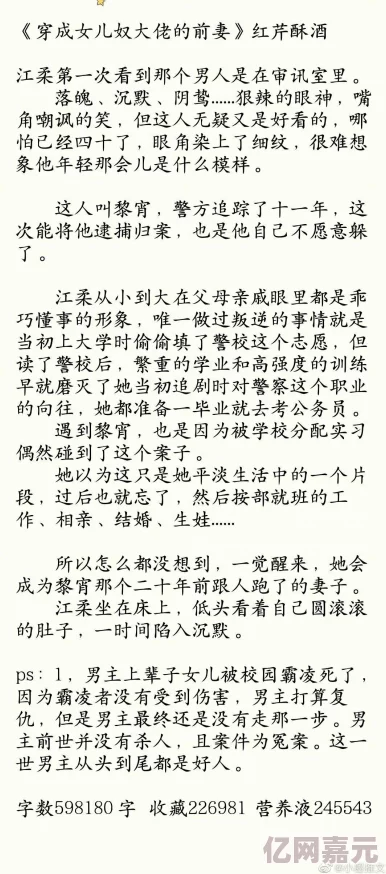 《穿成女儿奴大佬的前妻》红芹酥酒
江柔第一次看到那个男人是在审讯室里。
落魄、沉默、阴鸷……狠辣的眼神，嘴
角嘲讽的笑，但这人无疑又是好看的，哪
怕已经四十了，眼角染上了细纹，很难想
象他年轻那会儿是什么模样。
这人叫黎宵，警方追踪了十一年，这
次能将他逮捕归案，也是他自己不愿意躲
了。
江柔从小到大在父母亲戚眼里都是乖
巧懂事的形象，唯一做过叛逆的事情就是
当初上大学时偷偷填了警校这个志愿，但
读了警校后，繁重的学业和高强度的训练
早就磨灭了她当初追剧时对警察这个职业
的向往，她都准备一毕业就去考公务员。
遇到黎宵，也是因为被学校分配实习
偶然碰到了这个案子。
她以为这只是她平淡生活中的一个片
段，过后也就忘了，然后按部就班的工
作、相亲、结婚、生娃……
所以怎么都没想到，一觉醒来，她会
成为黎宵那个二十年前跟人跑了的妻子。
江柔坐在床上，低头看着自己圆滚滚
的肚子，一时间陷入沉默。
ps：1，男主上辈子女儿被校园霸凌死了，
因为霸凌者没有受到伤害，男主打算复
仇，但是男主最终还是没有走那一步。男
主前世并没有杀人，且案件为冤案。这一
世男主从头到尾都是好人。
字数598180字 收藏226981 营养液245543
亿网嘉元